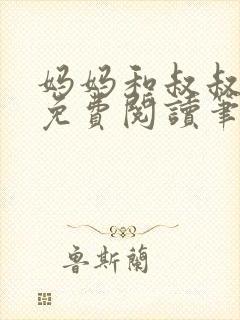 妈妈和叔叔
免費閱讀筆
魯斯蘭